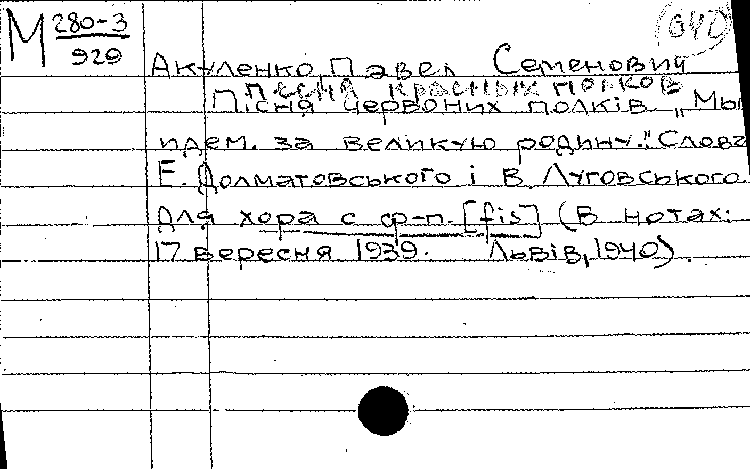 М 280-3
929
(042)
Акуленко, Павел Семенович
Песня красных полков
Пісня червоних полків „Мы
идем за великую родину." Слова
Е. Долматовського і В. Луговського
Для хора с ф-п. [fis] (В нотах:
17 вересня 1939. Львів, 1940).